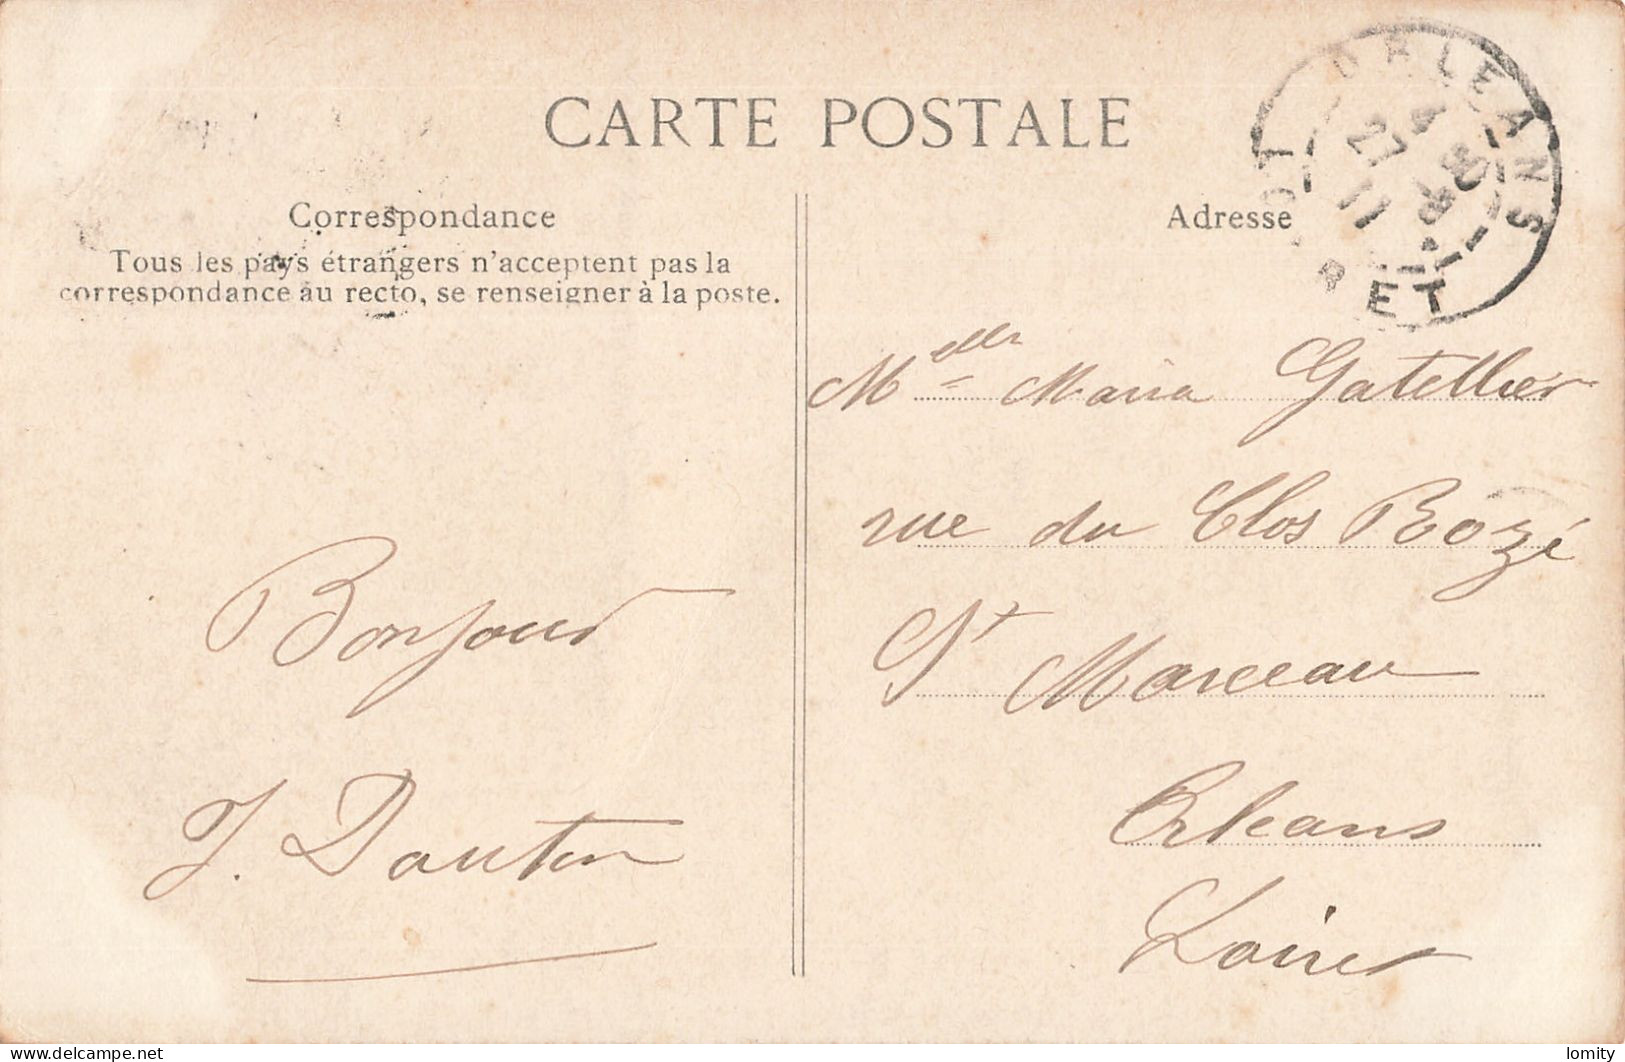 CARTE POSTALE
Correspondance
Tous les pays étrangers n'acceptent pas la
correspondance au recto, se renseigner à la poste.
Bonjour
J. Dautin
Adresse
ORLEANS
27 11
RET
Melle Maria Gatellier
rue du Clos Rozé
St Marceau
Orléans
Loiret
delcampe.net
lomity